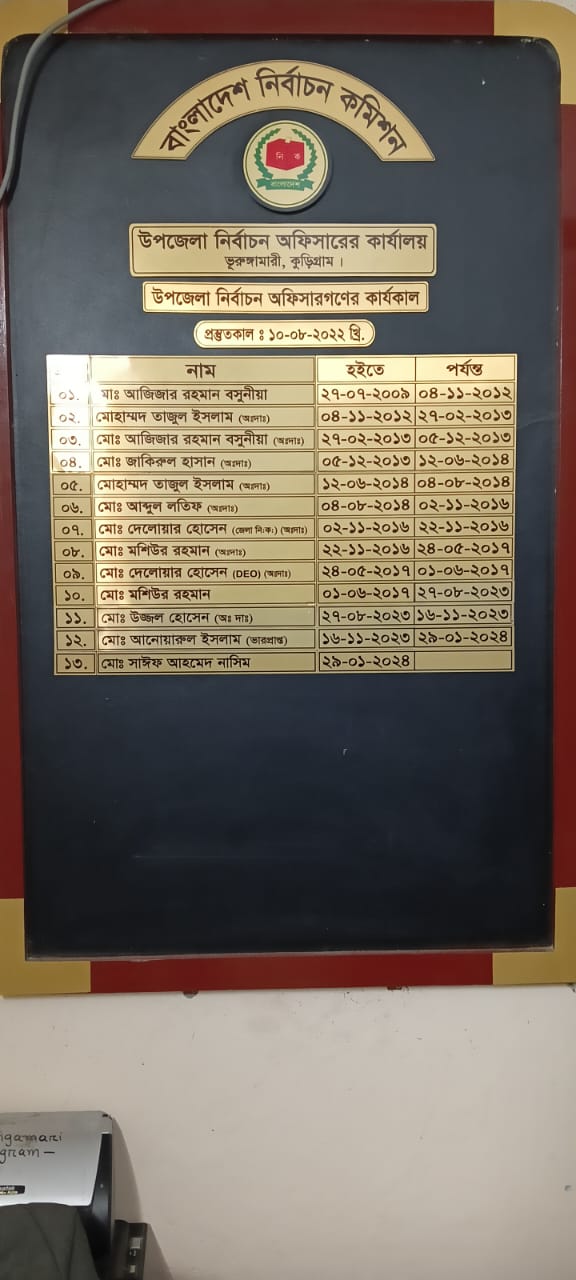 বাংলাদেশ নির্বাচন কমিশন
নি ক
বাংলাদেশ
উপজেলা নির্বাচন অফিসারের কার্যালয়
ভূরুঙ্গামারী, কুড়িগ্রাম ।
উপজেলা নির্বাচন অফিসারগণের কার্যকাল
প্রস্তুতকাল ঃ ১০-০৮-২০২২ খ্রি.
নাম হইতে পর্যন্ত
০১. মাঃ আজিজার রহমান বসুনীয়া ২৭-০৭-২০০৯ ০৪-১১-২০১২
০২. মোহাম্মদ তাজুল ইসলাম (অঃদাঃ) ০৪-১১-২০১২ ২৭-০২-২০১৩
০৩. মোঃ আজিজার রহমান বসুনীয়া (অঃদাঃ) ২৭-০২-২০১৩ ০৫-১২-২০১৩
০৪. মোঃ জাকিরুল হাসান (অঃদাঃ) ০৫-১২-২০১৩ ১২-০৬-২০১৪
০৫. মোহাম্মদ তাজুল ইসলাম (অঃদাঃ) ১২-০৬-২০১৪ ০৪-০৮-২০১৪
০৬. মোঃ আব্দুল লতিফ (অঃদাঃ) ০৪-০৮-২০১৪ ০২-১১-২০১৬
০৭. মোঃ দেলোয়ার হোসেন (জেলা নি:ক:) (অঃদাঃ) ০২-১১-২০১৬ ২২-১১-২০১৬
০৮. মোঃ মশিউর রহমান (অঃদাঃ) ২২-১১-২০১৬ ২৪-০৫-২০১৭
০৯. মোঃ দেলোয়ার হোসেন (DEO) (অঃদাঃ) ২৪-০৫-২০১৭ ০১-০৬-২০১৭
১০. মোঃ মশিউর রহমান ০১-০৬-২০১৭ ২৭-০৮-২০২৩
১১. মোঃ উজ্জল হোসেন (অঃ দাঃ) ২৭-০৮-২০২৩ ১৬-১১-২০২৩
১২. মোঃ আনোয়ারুল ইসলাম (ভারপ্রাপ্ত) ১৬-১১-২০২৩ ২৯-০১-২০২৪
১৩. মোঃ সাঈফ আহমেদ নাসিম ২৯-০১-২০২৪
gamari
gram —